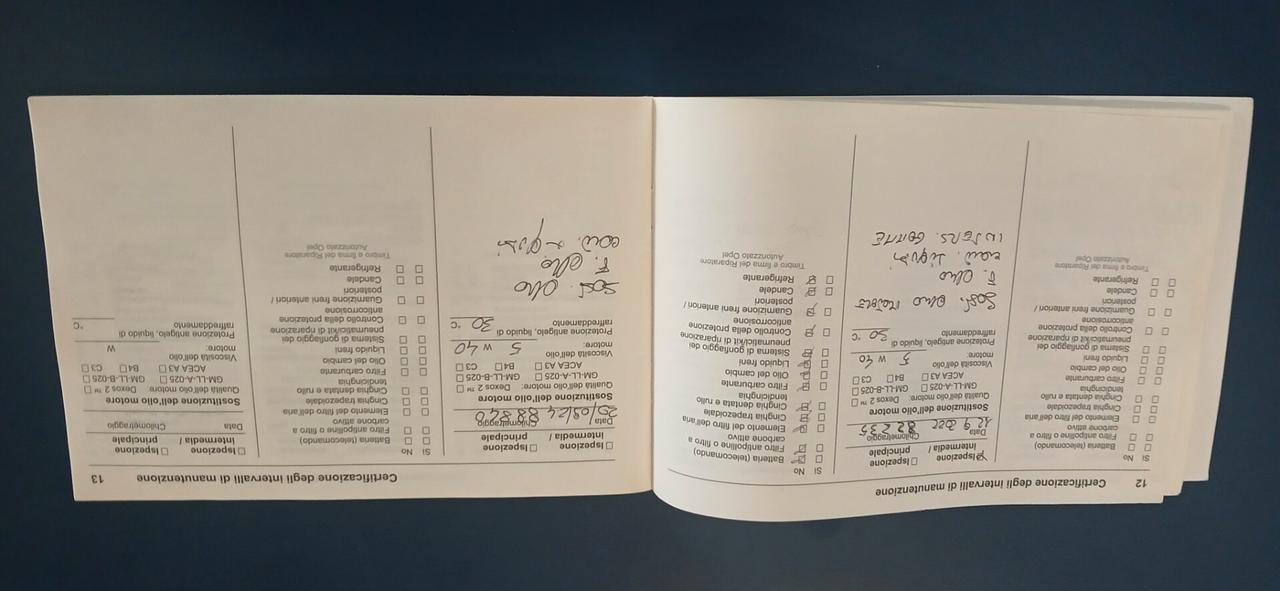 12 Certificazione degli intervalli di manutenzione
Sì No
Batteria (telecomando)
Filtro antipolline o filtro a
carbone attivo
Elemento del filtro dell'aria
Cinghia trapezoidale
Cinghia dentata e rullo
tendicinghia
Filtro carburante
Olio del cambio
Liquido freni
Sistema di gonfiaggio dei
pneumatici/kit di riparazione
Controllo della protezione
anticorrosione
Guarnizione freni anteriori /
posteriori
Candele
Refrigerante
Timbro e firma del Riparatore
Autorizzato Opel
Ispezione Ispezione
Intermedia / principale
Data Chilometraggio
82235
Sostituzione dell'olio motore
Qualità dell'olio motore: Dexos 2 ™
GM-LL-A-025 GM-LL-B-025
ACEA A3 B4 C3
Viscosità dell'olio
motore: 5 W 40
Protezione antigelo, liquido di
raffreddamento 30 °C
SOST. OLIO MOTORE
F. OLIO
LIQUIDI
INSERS. GOMME
Sì No
Batteria (telecomando)
Filtro antipolline o filtro a
carbone attivo
Elemento del filtro dell'aria
Cinghia trapezoidale
Cinghia dentata e rullo
tendicinghia
Filtro carburante
Olio del cambio
Liquido freni
Sistema di gonfiaggio dei
pneumatici/kit di riparazione
Controllo della protezione
anticorrosione
Guarnizione freni anteriori /
posteriori
Candele
Refrigerante
Timbro e firma del Riparatore
Autorizzato Opel
Certificazione degli intervalli di manutenzione 13
Ispezione Ispezione
Intermedia / principale
Data Chilometraggio
88840
Sostituzione dell'olio motore
Qualità dell'olio motore: Dexos 2 ™
GM-LL-A-025 GM-LL-B-025
ACEA A3 B4 C3
Viscosità dell'olio
motore: 5 W 40
Protezione antigelo, liquido di
raffreddamento 30 °C
SOST. OLIO
F. OLIO
LIQUIDI
Sì No
Batteria (telecomando)
Filtro antipolline o filtro a
carbone attivo
Elemento del filtro dell'aria
Cinghia trapezoidale
Cinghia dentata e rullo
tendicinghia
Filtro carburante
Olio del cambio
Liquido freni
Sistema di gonfiaggio dei
pneumatici/kit di riparazione
Controllo della protezione
anticorrosione
Guarnizione freni anteriori /
posteriori
Candele
Refrigerante
Timbro e firma del Riparatore
Autorizzato Opel
Ispezione Ispezione
Intermedia / principale
Data Chilometraggio
Sostituzione dell'olio motore
Qualità dell'olio motore: Dexos 2 ™
GM-LL-A-025 GM-LL-B-025
ACEA A3 B4 C3
Viscosità dell'olio
motore: W
Protezione antigelo, liquido di
raffreddamento °C